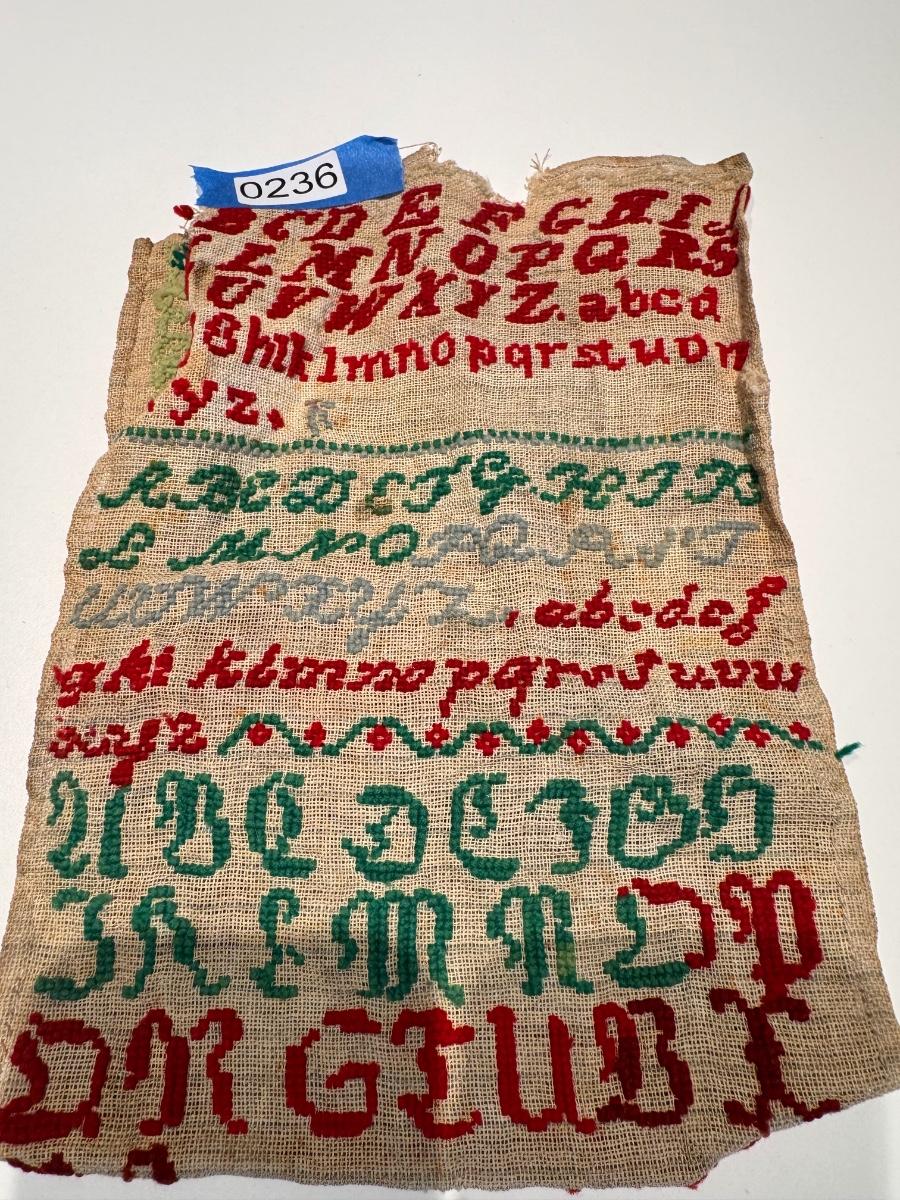 0236
B C D E F G H I J
L M N O P Q R S
U V W X Y Z. a b c d
g h i k l m n o p q r s t u v w
y z.
A B C D E F G H I K
L M N O P Q R S T
U V W X Y Z. a b c d e f
g h i k l m n o p q r s t u v w
x y z
A B C D E F G H
I K L M N O P
Q R S T U V X